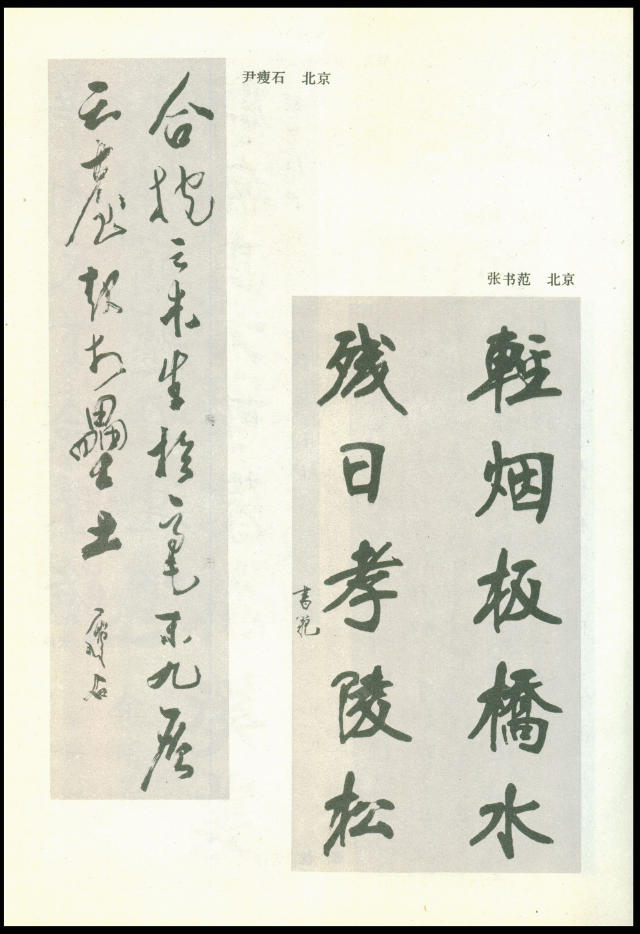 尹瘦石 北京
合抱之木生於毫末九層
之臺起於壘土
瘦石
张书范 北京
輕烟板橋水
残日孝陵松
書範